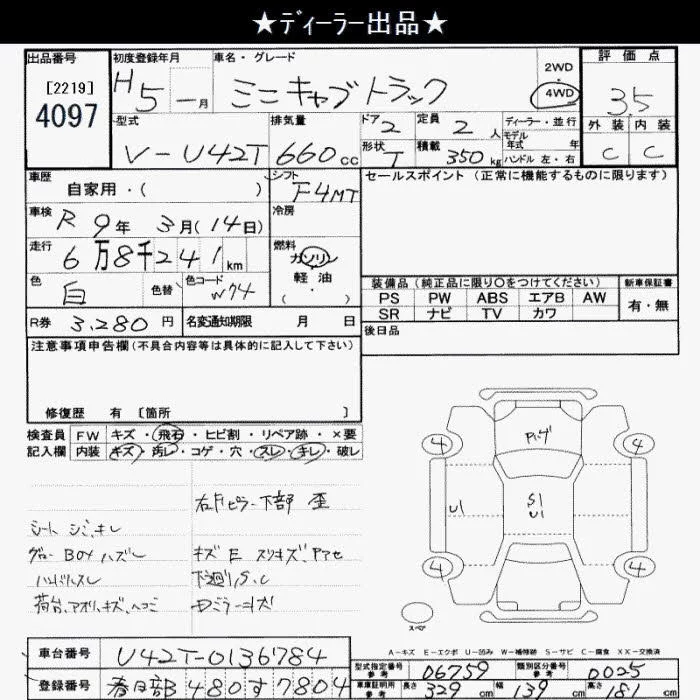 ★ディーラー出品★
出品番号
[2219]
4097
初度登録年月
H5 — 月
車名・グレード
ミニキャブトラック
2WD
・
4WD
評価点
35
外装 内装
C C
型式
V-U42T
排気量
660cc
ドア 2
定員 2人
形状 T
積載 350kg
ディーラー・並行
モデル年式 年
ハンドル 左・右
車歴
自家用・( )
シフト
F4MT
セールスポイント(正常に機能するものに限ります)
車検
R 9年 3月(14日)
冷房
走行
6万8千241km
燃料
ガソリン
軽油
( ・ )
色
白
色替
色コード
W74
装備品(純正品に限り○をつけてください)
新車保証書
PS PW ABS エアB AW
有・無
SR ナビ TV カワ
R券 3,280円
名変通知期限 月 日
後日品
注意事項申告欄(不具合内容等は具体的に記入して下さい)
修復歴 有 [箇所 ]
検査員 FW キズ・飛石・ヒビ割・リペア跡・×要
記入欄 内装 キズ・汚レ・コゲ・穴・スレ・キレ・破レ
右Fピラー下部 歪
シート シミ、キレ
グローBOXハズレ
キズE スリキズ、アセ
ハンドルスレ
下廻りS.C
荷台、アオリ、キズ、ヘコミ
4
4
U1
S1
U1
4
4
スペア
A-キズ E-エクボ U-凹み W-補修跡 S-サビ C-腐食 XX-交換済
車台番号 U42T-0136784
型式指定番号 参考 06759
類別区分番号 参考 0025
登録番号 春日部480す7804
車庫証明用 参考 長さ 329cm 幅 139cm 高さ 181cm